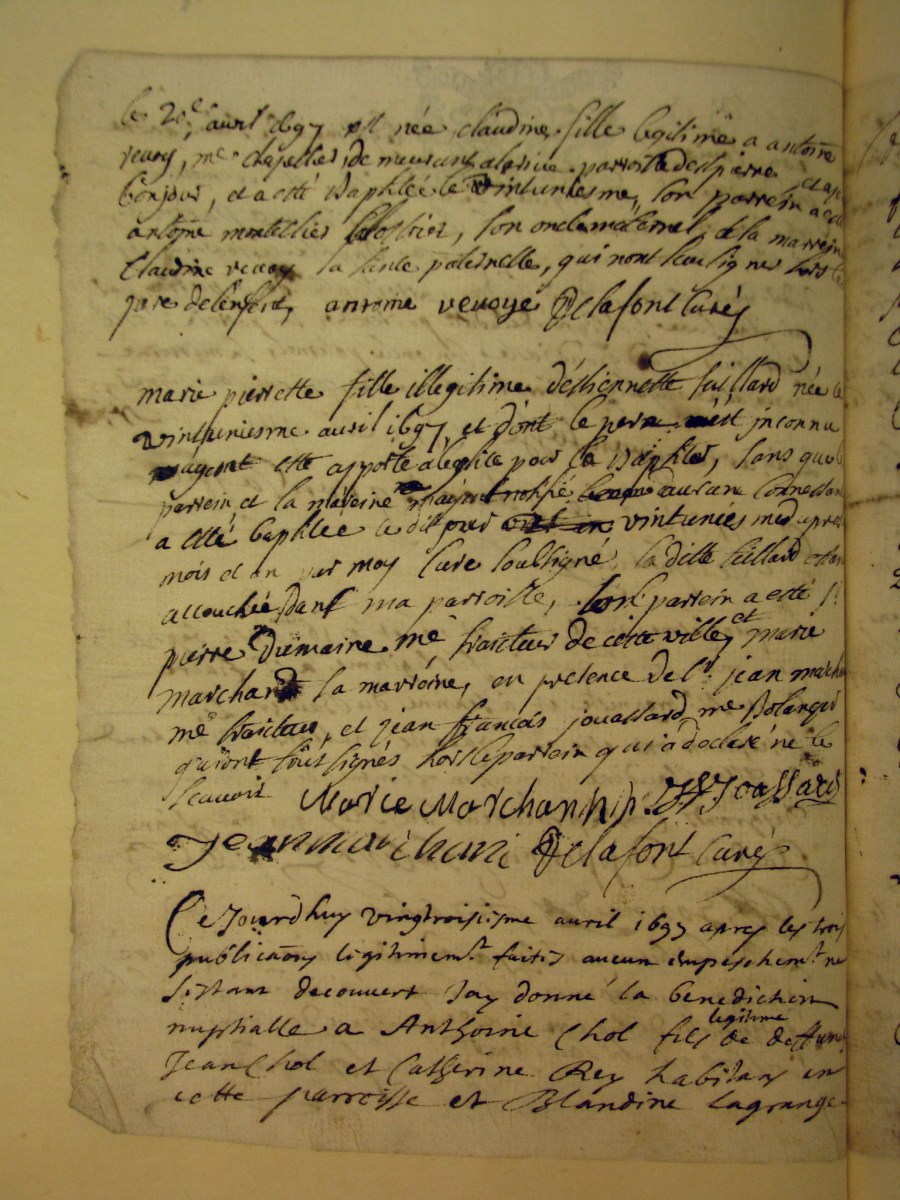 le 20e, auril 1697 est née claudine fille legitime a antoine
veuoy, me chapellier, demeurant alariue parroisse de st pierre et a
bonjour, et a esté Baptisée le vintuniesme, son parrein a esté
antoine montellier, son oncle maternel, et la marreine
Claudine veuoy sa tante paternelle, qui n'ont sceu signer hors le
pere de l'enfant, antoine veuoye Delafont Curé
marie pierrette fille illegitime d'estiennette suillard née le
vintuniesme auril 1697, et dont le pere est jnconnu
esté apporté a leglise pour la Baptiser, sans que
parrein et la mareine aucune connessan
a esté baptisée le dit jour vintuniesme dupres
mois et an par moy Curé soussigné, la ditte suillard estan
accouchée dans ma parroisse, son parrein a esté sr
pierre Dumaine me traicteur de cette ville, et marie
marchand la marreine, en presence de sr. jean marchan
me traicteur, et jean francois jouassard me Bolanger
qui ont soussignés hors le parrein qui a declaré ne le
scauoir Marie Marchant Joassard
Jean marchant Delafont Curé
Cejourdhuy vingtroisiesme auril 1697 apres les trois
publicaons legitimemt. faites aucun empeschemt. ne
sestant decouvert Jay donné la benediction
nuptialle a Anthoine Chol fils legitime de deffunt
Jean Chol et Catherine Rey habitans en
cette parroisse et Blandine Lagrange